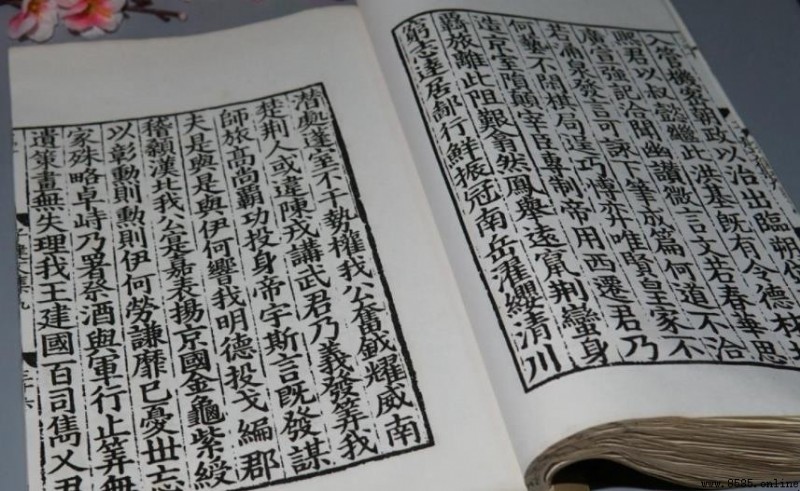 入管機密朝政以治出臨朔岱
熙君以叔懿繼此洪基既有令德材
廣宣強記洽聞幽讚微言文若春華思
若涌泉發言可詠下筆成篇何道不洽
何藝不閑棋局逞巧博弈唯賢皇家不
造京室隕顛宰臣專制帝用西遷君乃
羈旅離此阻艱翕然鳳舉遠竄荊蠻身
窮志達居鄙行鮮振冠南岳濯纓清川
潛處蓬室不干勢權我公奮鉞耀威南
楚荊人或違陳戎講武君乃義發筭我
師旅高尚霸功投身帝宇斯言既發謀
夫是與是與伊何響我明德投戈編郡
稽顙漢北我公寔嘉表揚京國金龜紫綬
以彰勳則勳則伊何勞謙靡已憂世忘
家殊略卓峙乃署祭酒與軍行止筭無
遺策畫無失理我王建國百司雋乂君